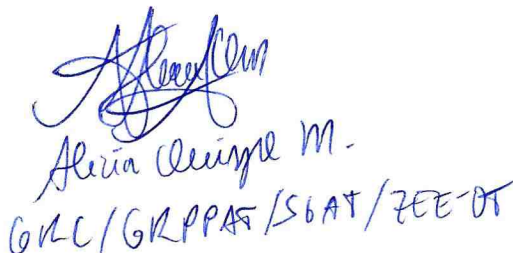 Alicia Quispe M.
GRC/GRPPAT/SGAT/ZEE-OT